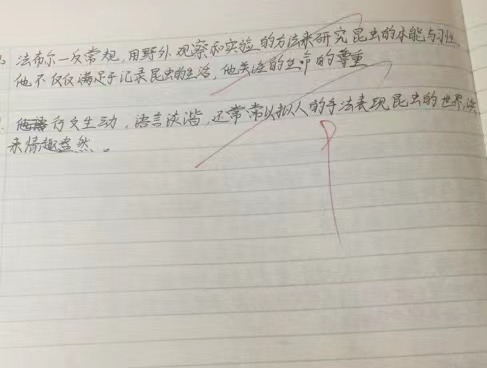 法布尔一反常规,用野外观察和实验的方法来研究昆虫的本能与习性
他不仅仅满足于记录昆虫的生活,他关注的生命的尊重
行文生动,语言诙谐,还常常以拟人的手法表现昆虫的世界,读
来情趣盎然。